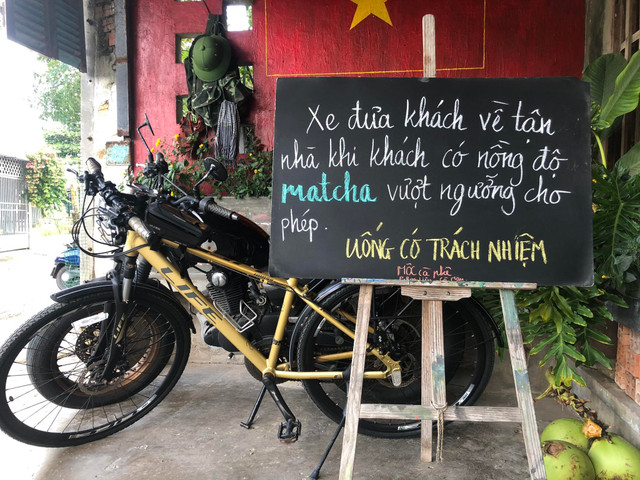 Xe đưa khách về tận
nhà khi khách có nồng độ
matcha vượt ngưỡng cho
phép.
UỐNG CÓ TRÁCH NHIỆM
Mộc cà phê
LIFE